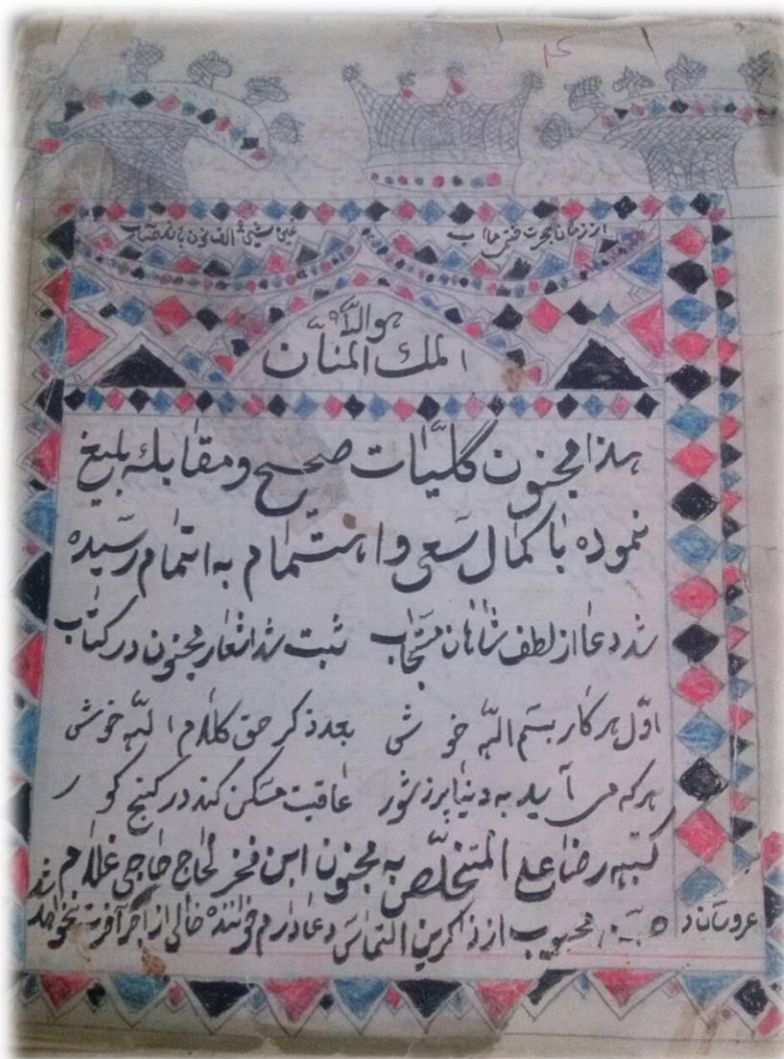 ۲۵
از زمان هجرت
هو اللّه
الملك المنّان
هذا مجنون کلیّات صحیح و مقابله بلیغ
نموده با کمال سعی و اهتمام به اتمام رسیده
شد دعا از لطف شاهان مستجاب ثبت شد اشعار مجنون در کتاب
اوّل هر کار بسم اللّه خوشی بعد ذکر حق کلام اللّه خوشی
هر که می آید به دنیا پر ز شور عاقبت مسکن کند در کنج کور
کتبه رضا علی المتخلّص به مجنون ابن فخر الحاج حاجی غلام
عروسان ده محبوب از ذاکرین التماس دعا دارم خواننده خالی از اجر آخرت نخواهد شد